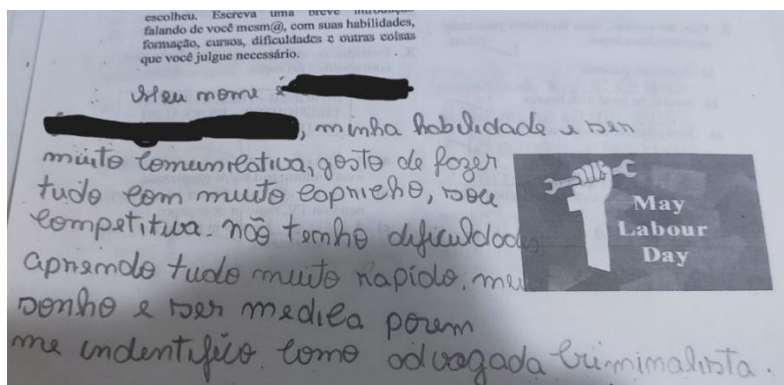 escolheu. Escreva uma breve introdução
falando de você mesm@, com suas habilidades,
formação, cursos, dificuldades e outras coisas
que você julgue necessário.
Meu nome é
, minha habilidade e ser
muito comunicativa, gosto de fazer
tudo com muito capricho, sou
competitiva. não tenho dificuldades
aprendo tudo muito rapido. meu
sonho e ser medica porem
me indentifico como advogada Criminalista.
May
Labour
Day